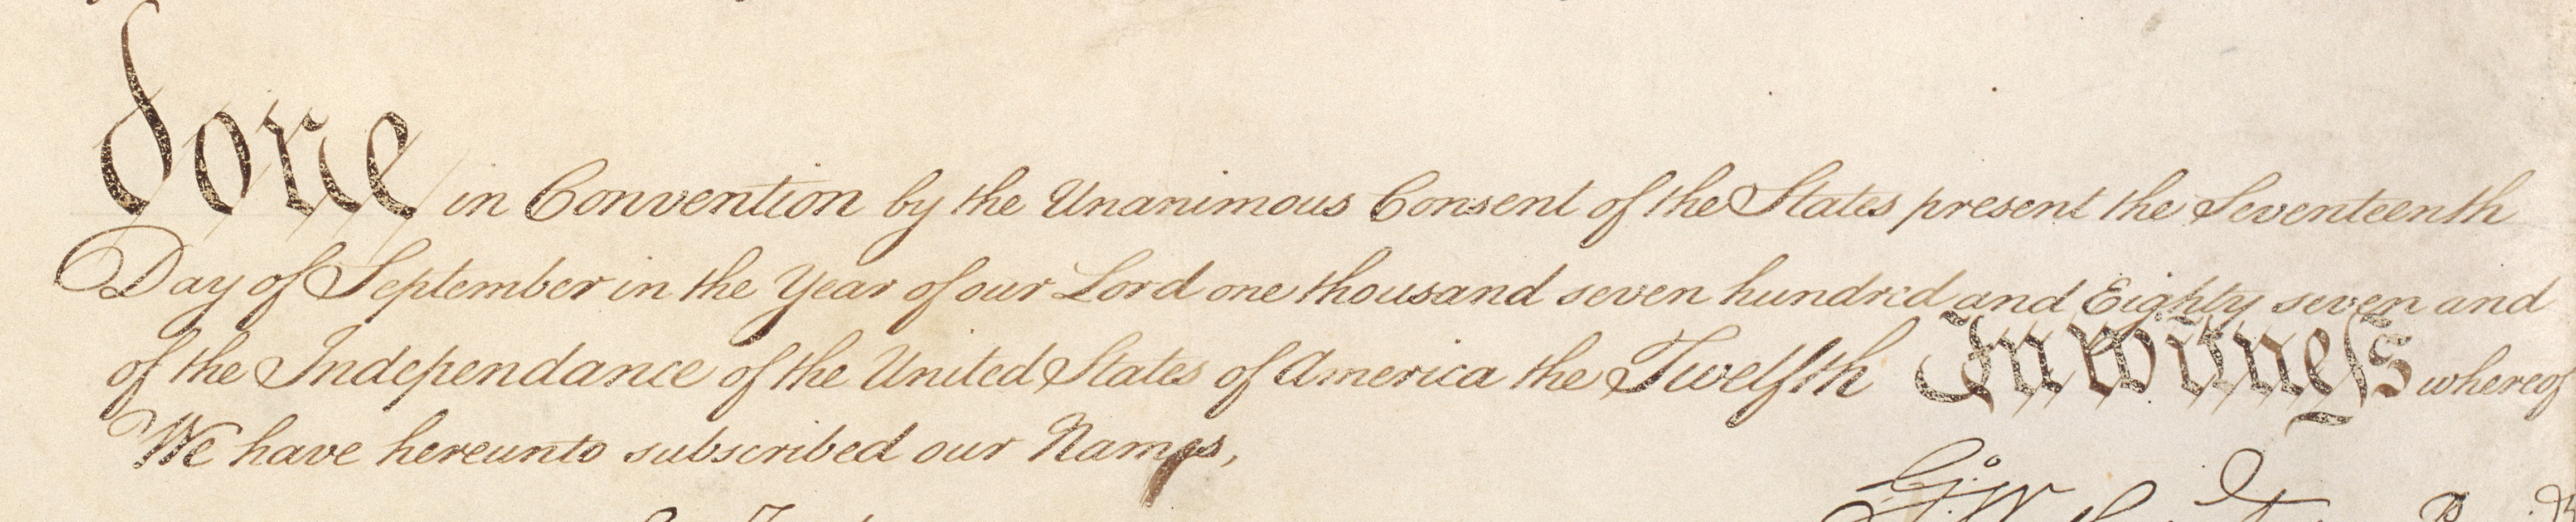 done in Convention by the Unanimous Consent of the States present the Seventeenth
Day of September in the Year of our Lord one thousand seven hundred and Eighty seven and
of the Independance of the United States of America the Twelfth In witneſs whereof
We have hereunto subscribed our Names,